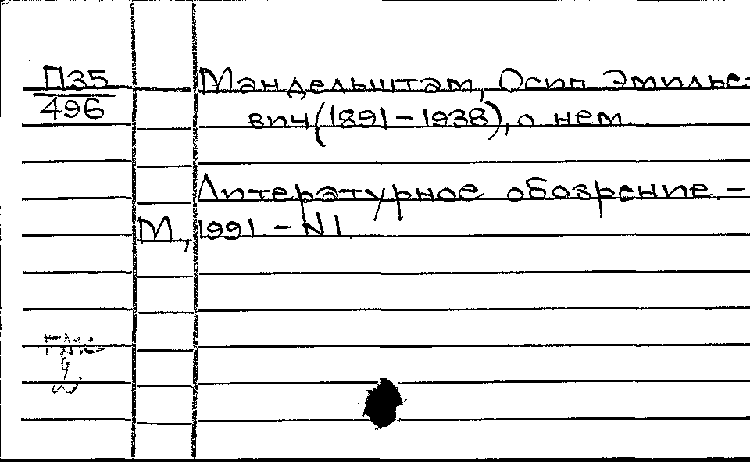 П35
496
Мандельштам, Осип Эмилье-
вич (1891-1938), о нем
Литературное обозрение. -
М, 1991 - N1